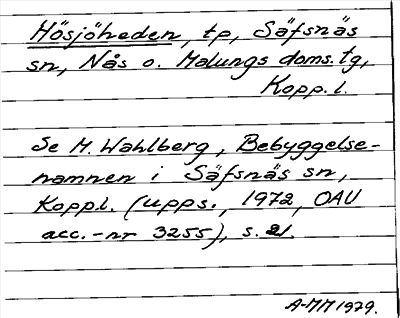 Hösjöheden, tp, Säfsnäs
sn, Nås o. Malungs doms. tg,
Kopp. l.
Se M. Wahlberg, Bebyggelse-
namnen i Säfsnäs sn,
Koppl. (upps., 1972, OAU
acc.-nr 3255), s. 21.
A-MM 1979.